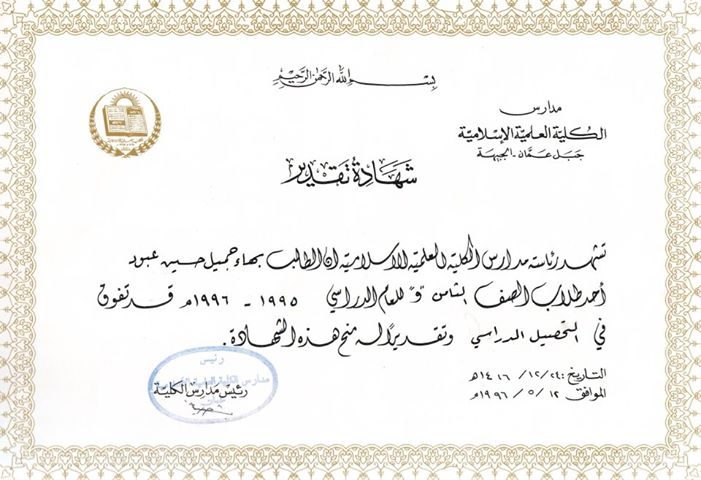 بسم الله الرحمن الرحيم
مدارس
الكلية العلمية الإسلامية
جبل عمان - الجبيهة
شهادة تقدير
تشهد رئاسة مدارس الكلية العلمية الاسلامية ان الطالب بهاء جميل حسين عبود
أحد طلاب الصف الثامن "و" للعام الدراسي ١٩٩٥ - ١٩٩٦م قد تفوق
في التحصيل الدراسي وتقديراً له منح هذه الشهادة.
التاريخ: ١٤١٦/١٢/٢٤هـ
الموافق ١٩٩٦/٥/١٢م
رئيس
مدارس الكلية العلمية
رئيس مدارس الكلية
عمان